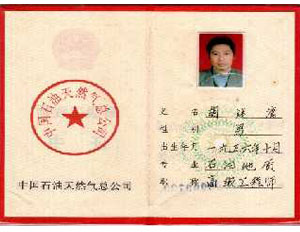 中国石油天然气总公司
中国石油天然气总公司
姓名
性别 男
出生年月 一九三六年十月
专业 石油地质
高级工程师